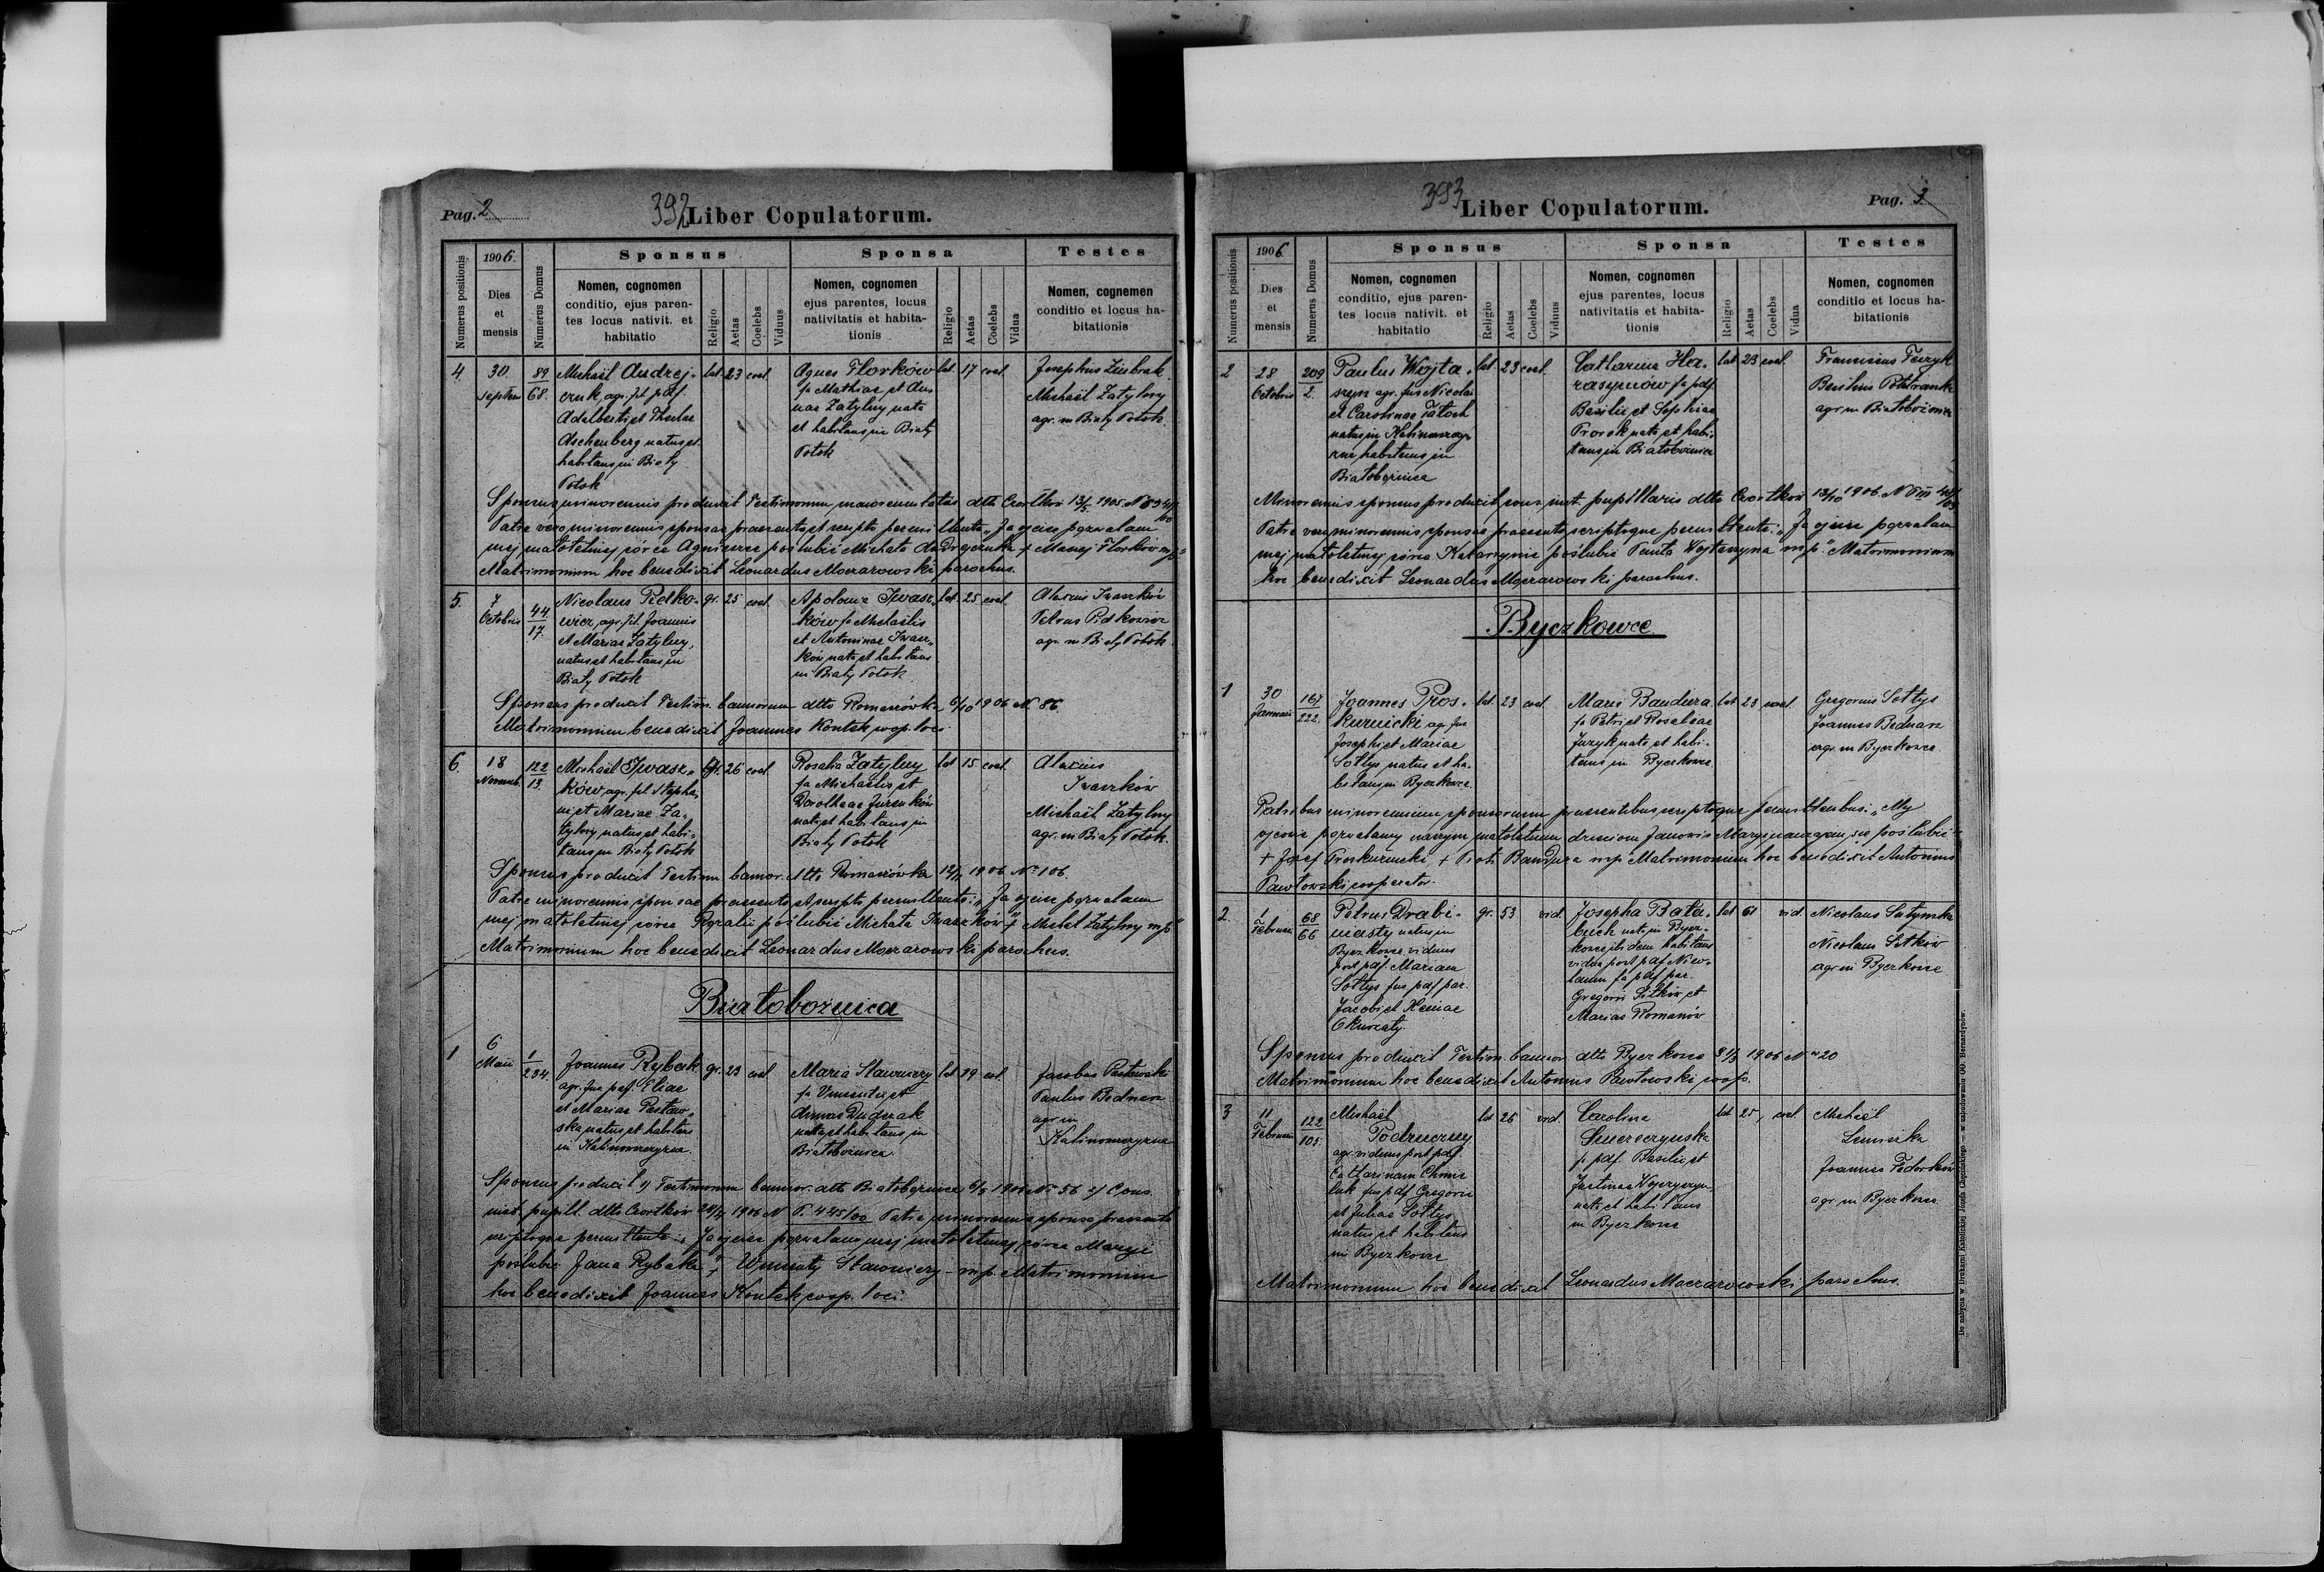 Pag. 2
392
Liber Copulatorum.
Numerus positionis
1906.
Dies
et
mensis
Numerus Domus
Sponsus
Nomen, cognomen
conditio, ejus paren-
tes locus nativit. et
habitatio
Religio
Aetas
Coelebs
Viduus
Sponsa
Nomen, cognomen
ejus parentes, locus
nativitatis et habita-
tionis
Religio
Aetas
Coelebs
Vidua
Testes
Nomen, cognemen
conditio et locus ha-
bitationis
4.
30
Septem
89
68.
Michaël Andrej-
czuk, agr. fil. pdf.
Adalberti et Theclae
Aschenberg natus et
habitans in Biały
Potok
lat. 23 coel.
Agnes Florków
fa Mathiae et An-
nae Zatylny nata
et habitans in Biały
Potok
lat. 17 coel.
Josephus
Michaël Zatylny
agr. in Biały Potok.
Sponsus minorennis produxit Testimonium maiorennitatis dtto Czortków 13/5 1905
Patre vero minorennis sponsae praesente et scripto permittente „Ja ojciec pozwalam
mej małoletniej córce Agnieszce poślubić Michała Andrejczuka + Maciej Florków mp"
Matrimonium hoc benedixit Leonardus Moczarowski parochus.
5.
7
Octobris
44
17.
Nicolaus
agr. fil. Joannis
et Mariae Zatylny,
natus et habitans in
Biały Potok
gr. 25 coel.
Apolonia Iwasz-
ków fa Michaëlis
et Antoninae Iwasz-
ków nata et habitans
in Biały Potok
lat. 25 coel.
Alexius Iwaszków
Petrus
agr. in Biały Potok
Sponsus produxit Testim. bannorum dtto Romaszówka 6/10 1906 № 86.
Matrimonium benedixit Joannes Kontek coop. loci.
6.
18
Novemb.
122
13.
Michaël Iwasz-
ków, agr. fil. Stepha-
ni et Mariae Za-
tylny natus et habi-
tans in Biały Potok
gr. 26 coel.
Rosalia Zatylny
fa Michaëlis et
Dorotheae Jurenków
nata et habitans in
Biały Potok
lat 15 coel.
Alexius
Iwaszków
Michaël Zatylny
agr. in Biały Potok.
Sponsus produxit Testim. bannor. dtto Romaszówka 1906 № 106.
Patre minorennis sponsae praesente et scripto permittente: „Ja ojciec pozwalam
mej małoletniej córce Rozalii poślubić Michała Iwaszków" + Michał Zatylny mp"
Matrimonium hoc benedixit Leonardus Moczarowski parochus.
Białobożnica
1
6
Maii
1
234.
Joannes Rybak
agr. fus pdf. Eliae
et Mariae Pastaw-
ska natus et habitans
in Kalinowszczyzna.
gr. 23 coel
Maria Stawniczy
fa Vincentii et
Annae Dudczak
nata et habitans in
Białobożnica.
lat 19 coel.
Jacobus Pastawski
Paulus Bednarz
agr. in
Kalinowszczyzna
Sponsus produxit 1) Testimonium bannor. dtto Białobożnica 6/5 1906 № 56 2) Cons.
inst. pupill. dtto Czortków 1906 N P. 445/00 Patre minorennis sponsae praesente
scriptoque permittente: „Ja ojciec pozwalam mej małoletniej córce Maryi
poślubić Jana Rybaka" + Wincenty Stawniczy mp. Matrimonium
hoc benedixit Joannes Kontek coop. loci.
393
Liber Copulatorum.
Pag. 3
Numerus positionis
1906.
Dies
et
mensis
Numerus Domus
Sponsus
Nomen, cognomen
conditio, ejus paren-
tes locus nativit. et
habitatio
Religio
Aetas
Coelebs
Viduus
Sponsa
Nomen, cognomen
ejus parentes, locus
nativitatis et habita-
tionis
Religio
Aetas
Coelebs
Vidua
Testes
Nomen, cognomen
conditio et locus ha-
bitationis
2
28
Octobris
209
2.
Paulus Wojta-
szyn agr. fus Nicolai
et Carolinae Tatoch
natus in Kalinowszczy-
zna habitans in
Białobożnica
lat. 23 coel.
Catharina Ha-
rasymów fa pdf.
Basilii et Sophiae
Prorok nata et habi-
tans in Białobożnica
lat 23 coel.
Franciscus
Basilius
agr. in Białobożnica
Minorennis sponsus produxit cons. inst. pupillaris dtto Czortków 13/10 1906.
Patre vero minorennis sponsae praesente scriptoque permittente: „Ja ojciec pozwalam
mej małoletniej córce Katarzynie poślubić Pawła Wojtaszyna mp." Matrimonium
hoc benedixit Leonardus Moczarowski parochus.
Byczkowce.
1
30
Januarii
167
222.
Joannes Pros-
kurnicki agr. fus
Josephi et Mariae
Sołtys natus et ha-
bitans in Byczkowce.
lat. 23 coel.
Maria Bandura
fa Petri et Rosaliae
Juzyk nata et habi-
tans in Byczkowce.
lat. 23 coel.
Gregorius Sołtys
Joannes Bednarz
agr. in Byczkowce.
Patribus minorennium sponsorum praesentibus scriptoque permittentibus: „My
ojcowie pozwalamy naszym małoletnim dzieciom Janowi i Maryi nawzajem się poślubić"
+ Józef Proskurnicki + Piotr Bandura mp Matrimonium hoc benedixit Antonius
Pawłowski cooperator.
2.
1
Februarii
68
66
Petrus Drabi-
niasty natus in
Byczkowce viduus
post pdf. Mariam
Sołtys fus pdf par.
Jacobi et Xeniae
gr. 53 vid.
Josepha Bała-
buch nata in Bycz-
kowce ibidem habitans
vidua post pdf Nico-
laum fa pdf par.
Gregorii Sitków et
Mariae Romanów
lat 61 vid.
Nicolaus
Nicolaus Sitków
agr in Byczkowce
Sponsus produxit Testim. bannor dtto Byczkowce 1906 № 20
Matrimonium hoc benedixit Antonius Pawłowski coop.
3
11
Februarii
122
105.
Michaël
Podruczny
agr. viduus post pdf.
Catharinam Chmie-
luk fus pdf Gregorii
et Juliae Sołtys
natus et habitans
in Byczkowce
lat 26 vid.
Carolina
fa pdf. Basilii et
Justinae
nata et habitans
in Byczkowce
lat. 25, coel
Michaël
Joannes Fedorków
agr. in Byczkowce
Matrimonium hoc benedixit Leonardus Moczarowski parochus.
Do nabycia w Drukarni Katolickiej Józefa Chęcińskiego — w zabudowaniu OO. Bernardynów.